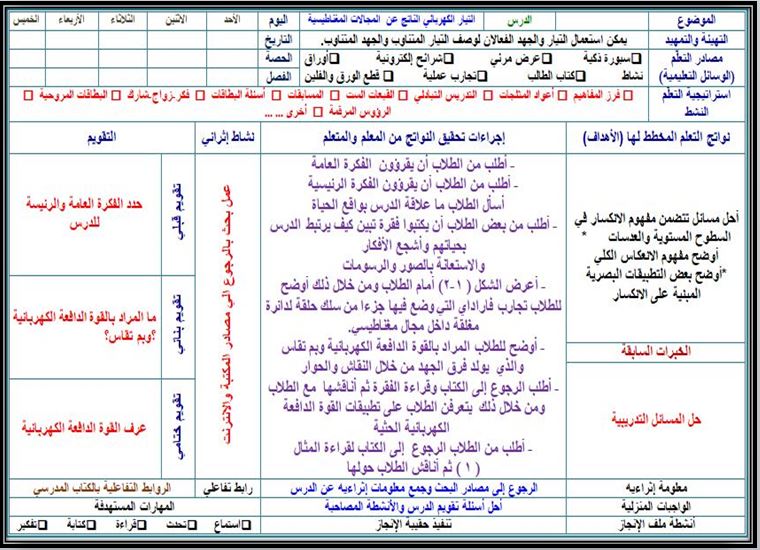 الموضوع
الدرس
التيار الكهربائي الناتج عن المجالات المغناطيسية
اليوم
الأحد
الاثنين
الثلاثاء
الأربعاء
الخميس
التهيئة والتمهيد
يمكن استعمال التيار والجهد الفعالان لوصف التيار المتناوب والجهد المتناوب.
التاريخ
مصادر التعلم
(الوسائل التعليمية)
سبورة ذكية
عرض مرئي
شرائح إلكترونية
أوراق
الحصة
نشاط
كتاب الطالب
تجارب عملية
قطع الورق والفلين
الفصل
استراتيجية التعلم
النشط
فرز المفاهيم
أعواد المثلجات
التدريس التبادلي
القبعات الست
المسابقات
أسئلة البطاقات
فكر.زواج.شارك
البطاقات المروحية
الرؤوس المرقمة
أخرى ... ...
نواتج التعلم المخطط لها (الأهداف)
إجراءات تحقيق النواتج من المعلم والمتعلم
نشاط إثرائي
التقويم
أحل مسائل تتضمن مفهوم الانكسار في
السطوح المستوية والعدسات *
أوضح مفهوم الانعكاس الكلي
*أوضح بعض التطبيقات البصرية
المبنية على الانكسار
الخبرات السابقة
حل المسائل التدريبية
- أطلب من الطلاب أن يقرؤون الفكرة العامة
- أطلب من الطلاب أن يقرؤون الفكرة الرئيسية
أسأل الطلاب ما علاقة الدرس بواقع الحياة
- أطلب من بعض الطلاب أن يكتبوا فقرة تبين كيف يرتبط الدرس
بحياتهم وأشجع الأفكار
والاستعانة بالصور والرسومات
- أعرض الشكل ( ١-٢) أمام الطلاب ومن خلال ذلك أوضح
للطلاب تجارب فاراداي التي وضع فيها جزءا من سلك حلقة لدائرة
مغلقة داخل مجال مغناطيسي.
- أوضح للطلاب المراد بالقوة الدافعة الكهربائية وبم تقاس
والذي يولد فرق الجهد من خلال النقاش والحوار
- أطلب الرجوع إلى الكتاب وقراءة الفقرة ثم أناقشها مع الطلاب
ومن خلال ذلك يتعرفن الطلاب على تطبيقات القوة الدافعة
الكهربائية الحثية
- أطلب من الطلاب الرجوع إلى الكتاب لقراءة المثال
( ١ ) ثم أناقش الطلاب حولها
عمل بحث بالرجوع الي مصادر المكتبة والانترنت
تقويم قبلي
حدد الفكرة العامة والرئيسة
للدرس
تقويم بنائي
ما المراد بالقوة الدافعة الكهربائية
؟وبم تقاس؟
تقويم ختامي
عرف القوة الدافعة الكهربائية
معلومة إثراءيه
الرجوع إلى مصادر البحث وجمع معلومات إثراءيه عن الدرس
رابط تفاعلي
الروابط التفاعلية بالكتاب المدرسي
الواجبات المنزلية
أحل أسئلة تقويم الدرس والأنشطة المصاحبة
المهارات المستهدفة
أنشطة ملف الإنجاز
تنفيذ حقيبة الإنجاز
استماع
تحدث
قراءة
كتابة
تفكير